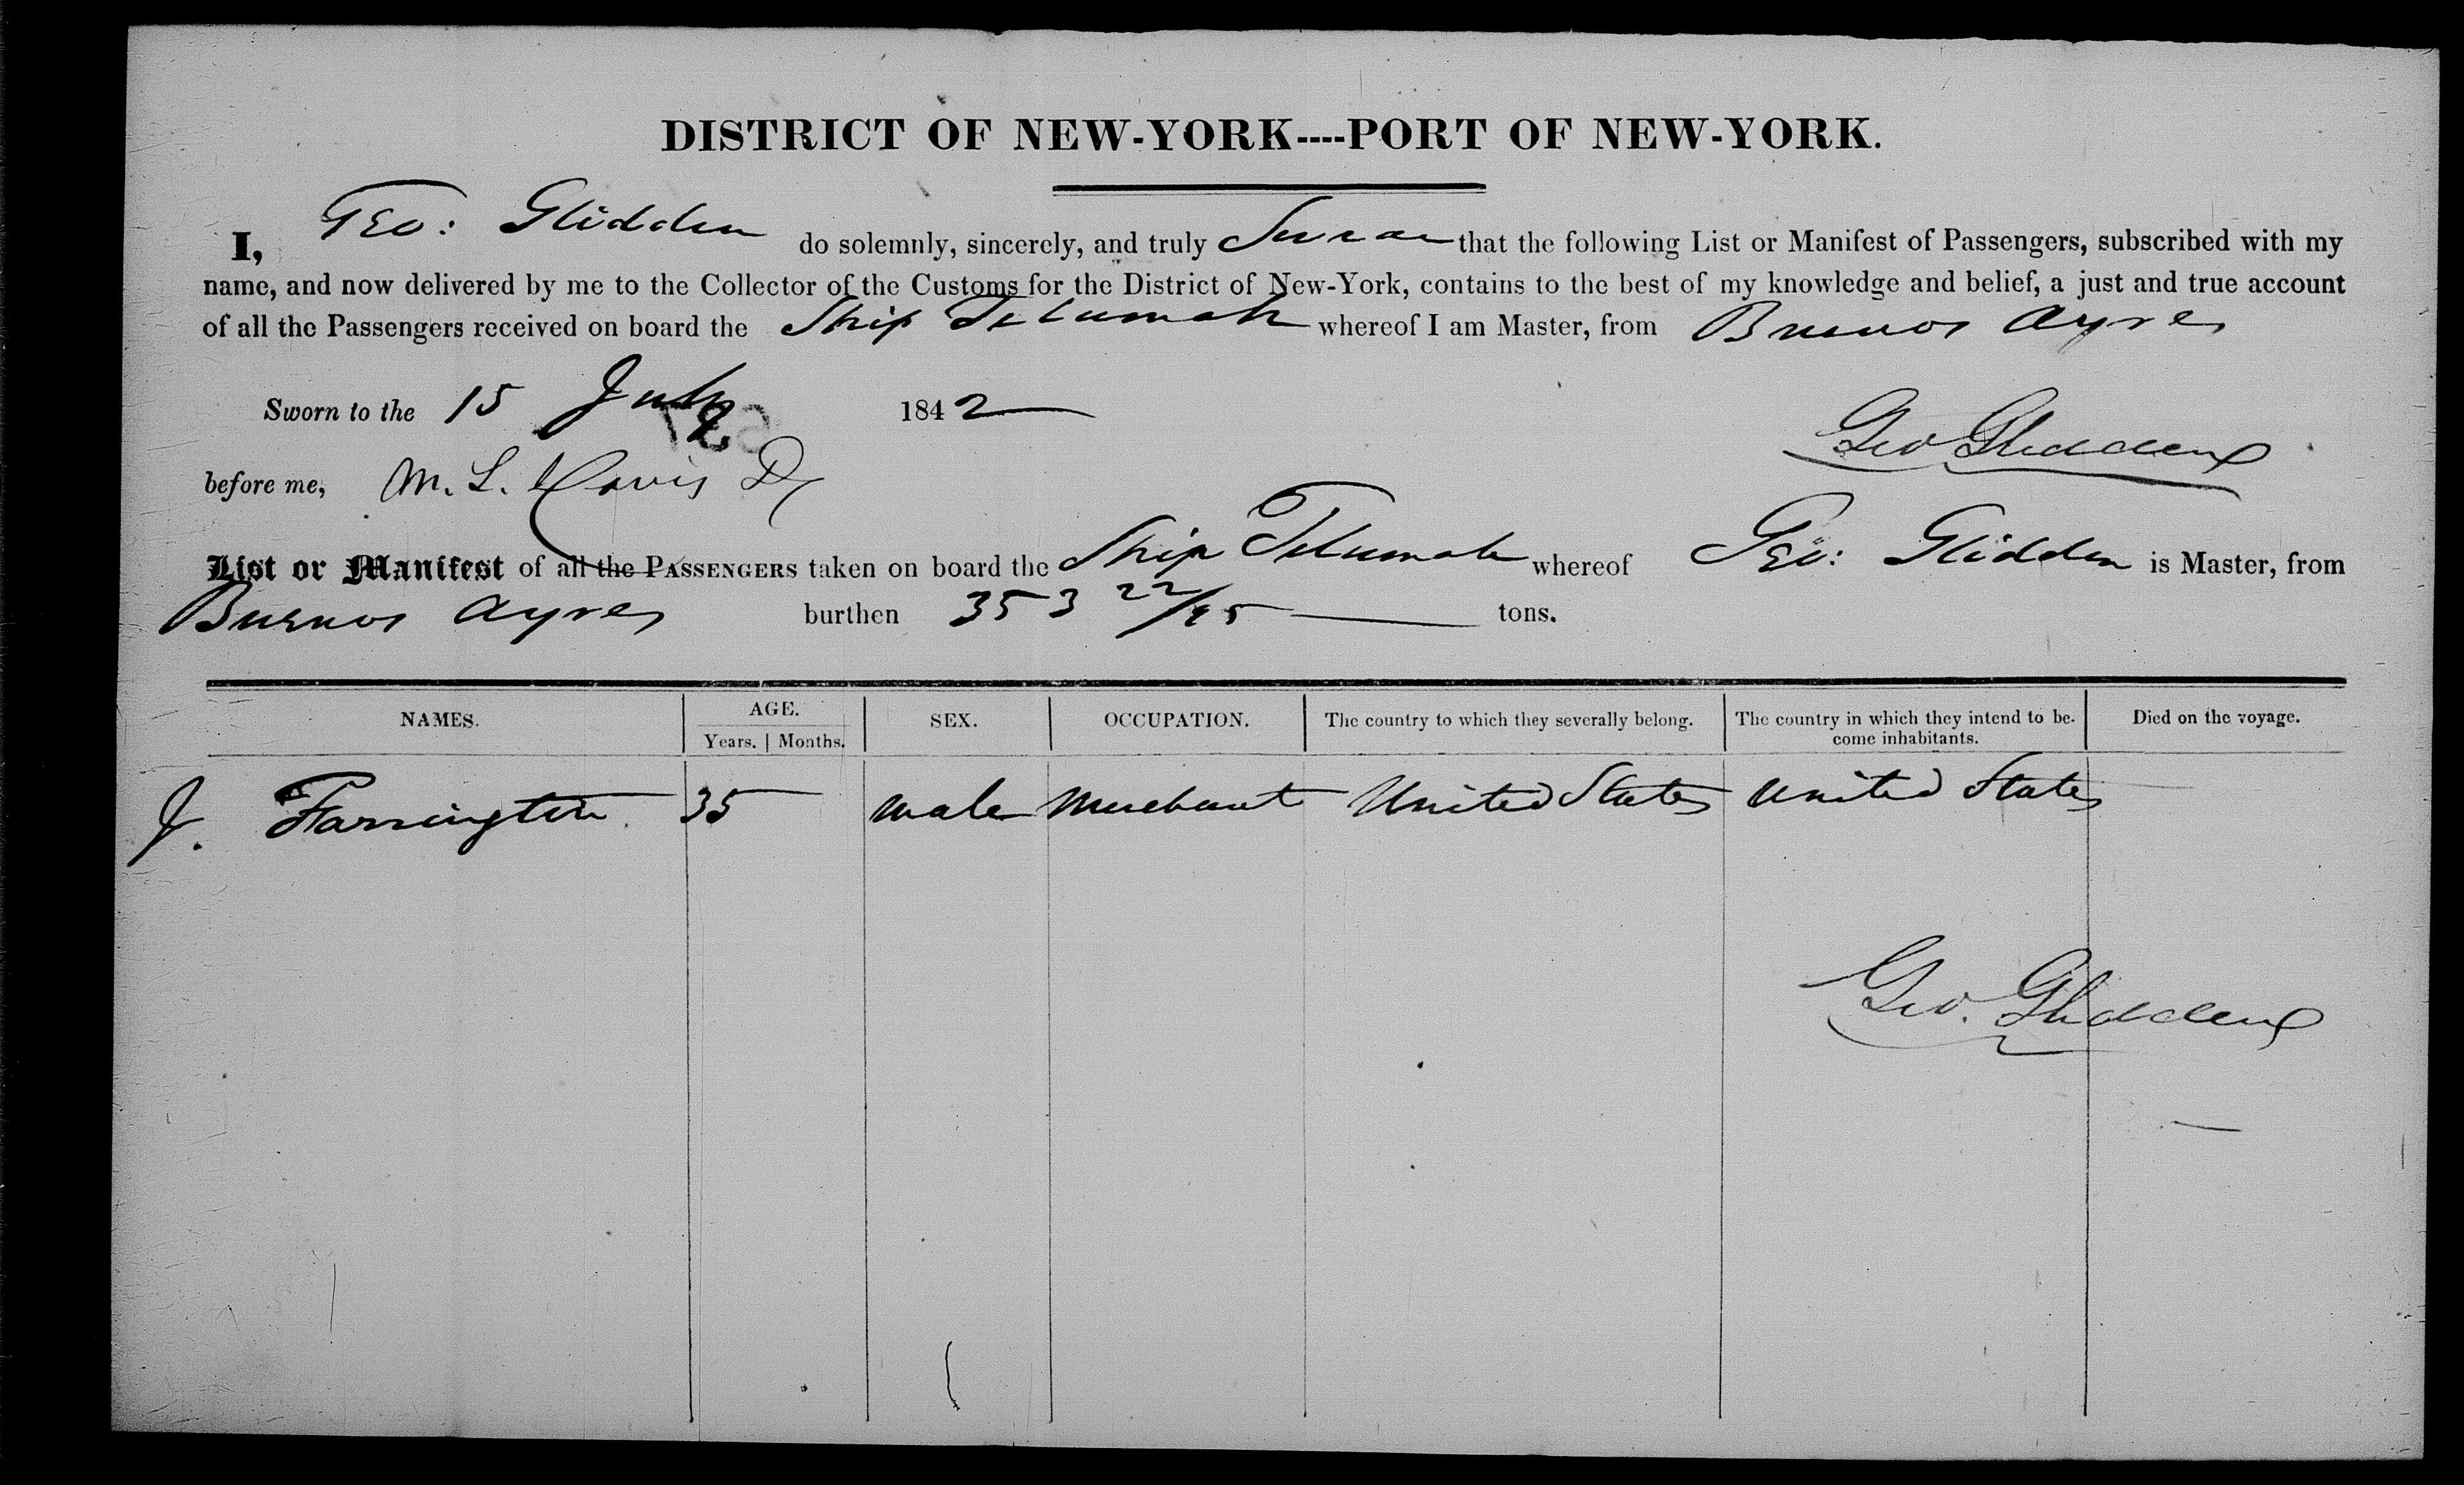 DISTRICT OF NEW-YORK----PORT OF NEW-YORK.
I, Geo: Glidden do solemnly, sincerely, and truly Swear that the following List or Manifest of Passengers, subscribed with my
name, and now delivered by me to the Collector of the Customs for the District of New-York, contains to the best of my knowledge and belief, a just and true account
of all the Passengers received on board the Ship whereof I am Master, from Buenos Ayres
Sworn to the 15 July 1842
Geo Glidden
before me, M. L. Davis
List or Manifest of all the PASSENGERS taken on board the Ship whereof Geo: Glidden is Master, from
Buenos Ayres burthen 353 22/95 tons.
NAMES. AGE. SEX. OCCUPATION. The country to which they severally belong. The country in which they intend to be- Died on the voyage.
Years. | Months. come inhabitants.
J. Farrington 35 male Merchant United States United States
Geo. Glidden